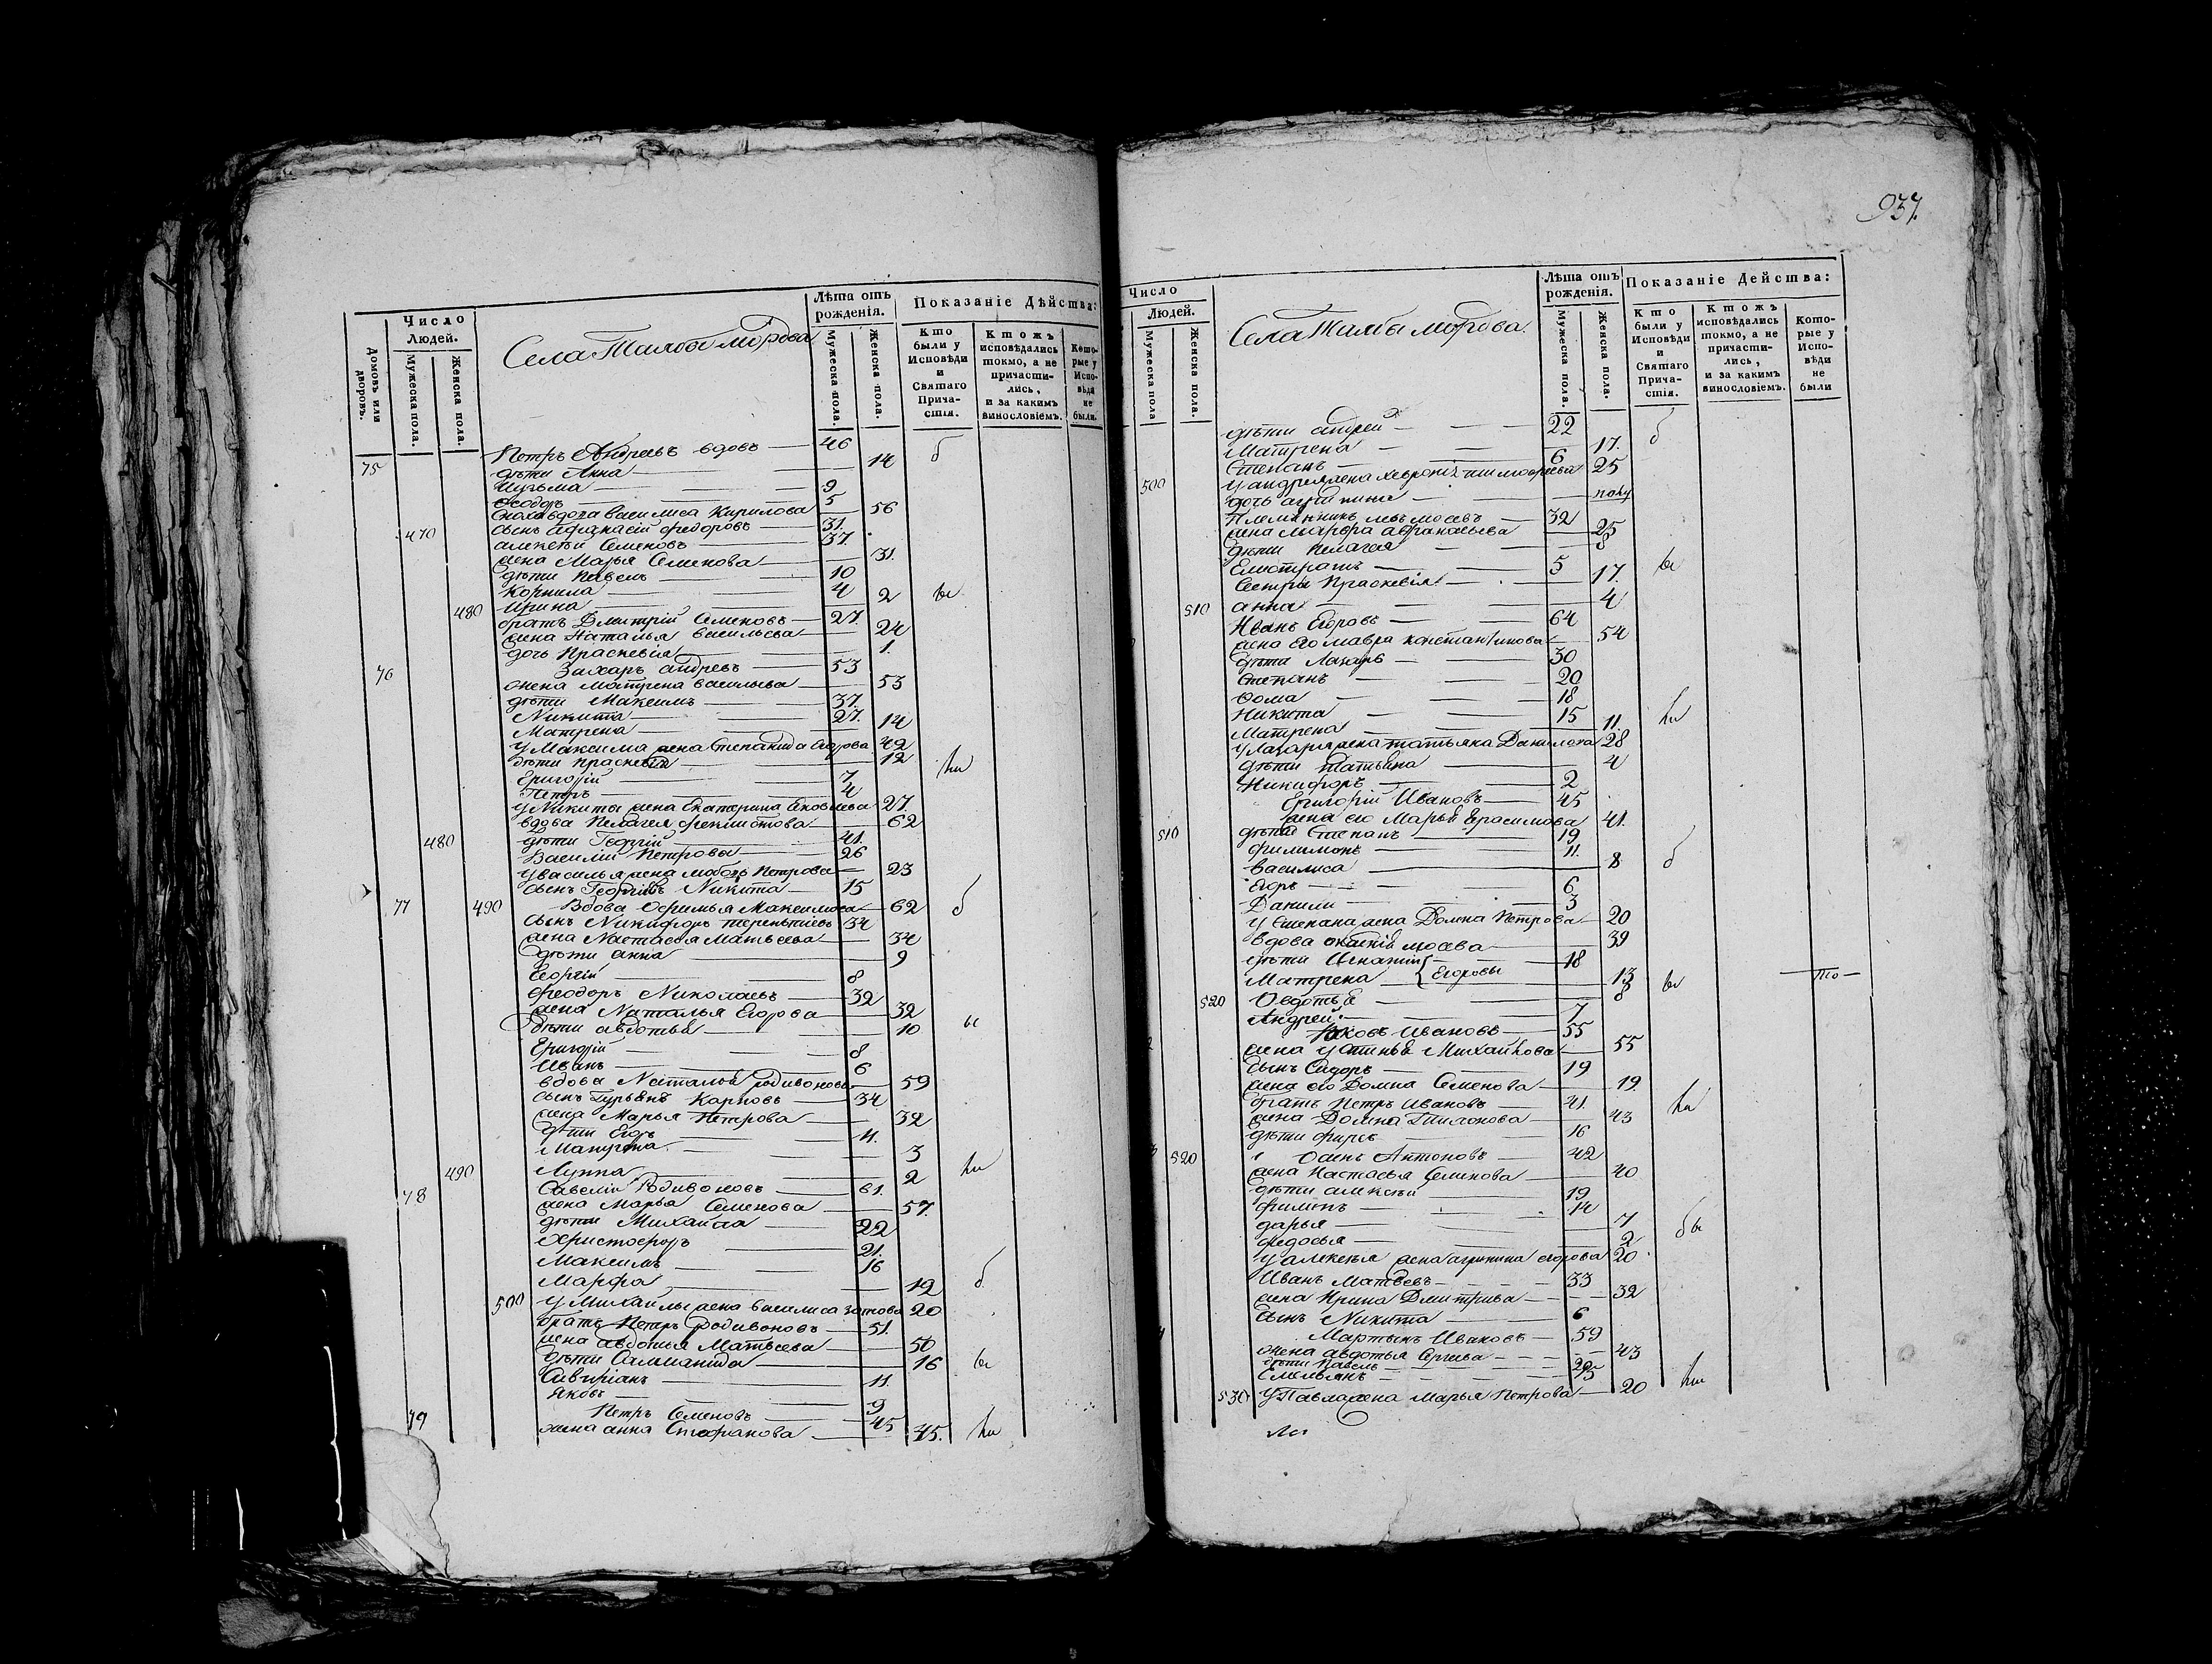 937.
Число
Людей.
Домовъ или дворовъ.
Мужеска пола.
Женска пола.
Села Талбы мордва
Лѣта отъ рожденія.
Мужеска пола.
Женска пола.
Показаніе Дѣйства:
Кто были у Исповѣди и Святаго Причастія.
Ктожъ исповѣдались токмо, а не причастились, и за какимъ винословіемъ.
Которые у Исповѣди не были.
75 Петръ Андреевъ вдовъ 46 б
дѣти Анна 14
Кузьма 9
Феодоръ 5
вдова василиса Кирилова 56
470 сынъ афанасій федоровъ 31.
алексѣй Семеновъ 37.
жена Марья Семенова 31.
дѣти Павелъ 10
Корнила 4
480 Ирина 2 вы
братъ Дмитрій Семеновъ 27.
жена Наталья васильева 24
дочь Прасковія 1.
76 Захаръ андреевъ 53
жена матрена васильева 53
дѣти Максимъ 37.
Никита 27.
Матрена 14
у Максима жена Степанида Егорова 42
дѣти прасковія 12
Григорій 7 ли
Петръ 4
у Никиты жена Екатерина Яковлева 27.
вдова Пелагея феклистова 62
480 дѣти Георгій 41.
Василій Петровы 26
у василья жена любовь Петрова 23
сынъ Георгіевъ Никита 15
77 490 Вдова Офимья Максимова 62 б
сынъ Никифоръ терентьевъ 34
жена Настасья Матвеева 34
дѣти анна 9
Георгій 8
Феодоръ Николаевъ 32
жена Наталья Егорова 32
дѣти авдотья 10 ы
Григорій 8
Иванъ 6
вдова Наталья родивонова 59
сынъ Гурьянъ Карповъ 34
жена Марья Петрова 32
дѣти Егоръ 11.
Матрена 3
490 Лукпа 2 ли
78 Савелій Родивоновъ 61.
жена Марья Семенова 57.
дѣти Михаила 22
Христофоръ 21.
Максимъ 16
Марфа 12 б
500 у Михайлы жена василиса 20
братъ Петръ Родивоновъ 51.
жена авдотья Матвеева 50
дѣти Саламанида 16 вы
11
Яковъ 9
79 Петръ Семеновъ 45
жена анна Стефанова 45. ли
Число
Людей.
Мужеска пола
Женска пола.
Села Талбы мордва.
Лѣта отъ рожденія.
Мужеска пола.
Женска пола.
Показаніе Действа:
Кто были у Исповѣди и Святаго Причастія.
Ктожъ исповѣдались токмо, а не причастились, и за какимъ винословіемъ.
Которые у Исповѣди не были
дѣти андрей 22 б
Матрена 17.
Степанъ 6
500 у андрея жена хеврония тимофеева 25
дочь агрипина полу
Племянникъ левъ мосевъ 32
жена марфра афанасьева 25
дѣти пелагея 8
Елистратъ 5 вы
Сестры Прасковія 17.
510 анна 4
Иванъ Егоровъ 64
жена его мавра константинова 54
дѣти Лазарь 30
Степанъ 20
Фома 18
Никита 15 ли
Матрена 11.
у Лазаря жена татьяна Данилова 28
дѣти Татьяна 4
Никифоръ 2
Григорій Ивановъ 45
жена его Марья Герасимова 41.
510 дѣти Степанъ 19
филимонъ 11.
василиса 8 б
Егоръ 6
Данили 3
у Степана жена Домна Петрова 20
вдова мосева 39
дѣти Игнатій 18
Матрена Егоровы 13 вы то
520 Овдотья 8
Андрей 7
Яковъ Ивановъ 55
жена устинья Михайлова 55
сынъ Сидоръ 19
жена его Домна Семенова 19.
братъ Петръ Ивановъ 41. ли
жена Домна Тимонова 43
дѣти фирсъ 16
520 Осипъ Антоновъ 42
жена Настасья Семенова 40
дѣти алексѣй 19
филипъ 14
дарья 7
федосья 2 бы
у алексѣя жена агрипина егорова 20
Иванъ Матвеевъ 33
жена Ирина Дмитриева 32
сынъ Никита 6
Мартынъ Ивановъ 59
жена авдотья Сергеева 43
дѣти Павелъ
Емельянъ
530 у Павла жена Марья Петрова 20 ли